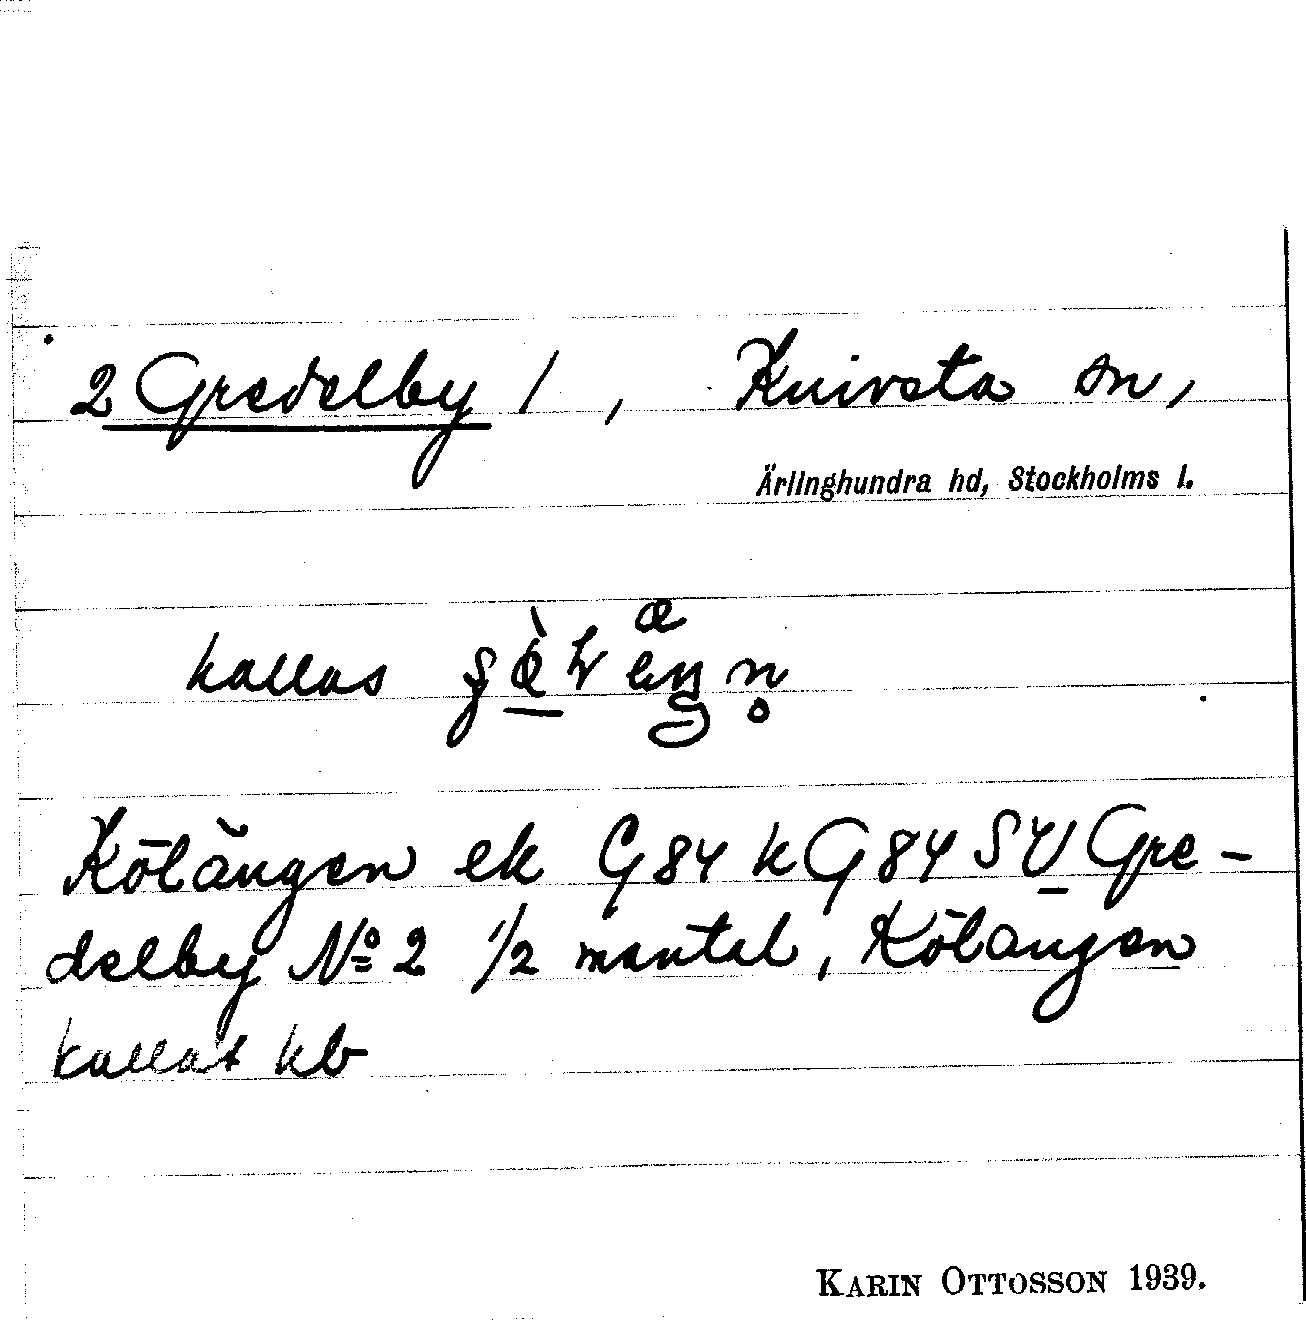 2 Gredelby 1, Knivsta sn,
Ärlinghundra hd, Stockholms l.
kallas
Kölängen ek G84 k G84 SV Gre-
delby Nº 2 1/2 mantal, Kölängen
kallat kb
KARIN OTTOSSON 1939.